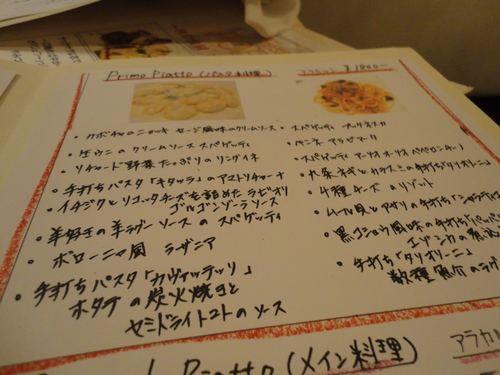 Primo Piatto (パスタ料理)
アラカルト ¥1800ー
・カボチャのニョッキ セージ風味のクリームソース
・生ウニのクリームソース スパゲッティ
・リチャード野菜たっぷりのリングイネ
・手打ちパスタ「キタッラ」のアマトリチャーナ
・イチジクとリコッタチーズを詰めたラビオリ
ゴルゴンゾーラソース
・羊好きの羊ラグーソースのスパゲッティ
・ボローニャ風 ラザニア
・手打ちパスタ「カヴァテッリ」
ホタテの炭火焼きと
セミドライトマトのソース
・スパゲッティ プッタネスカ
・ペンネ アラビアータ
・スパゲッティ アーリオオーリオ ペペロンチーノ
・九条ネギとカラスミの手打ちタリオリーニ
・4種チーズのリゾット
・ムール貝とアサリの手打ち
・黒コショウ風味の手打ち
エゾシカの煮込
・手打ち「タリオリーニ」
数種魚介のラグ
Piatto (メイン料理)
アラカ